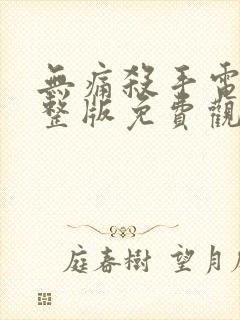 無痛殺手電
整版免費觀
庭春樹 望月